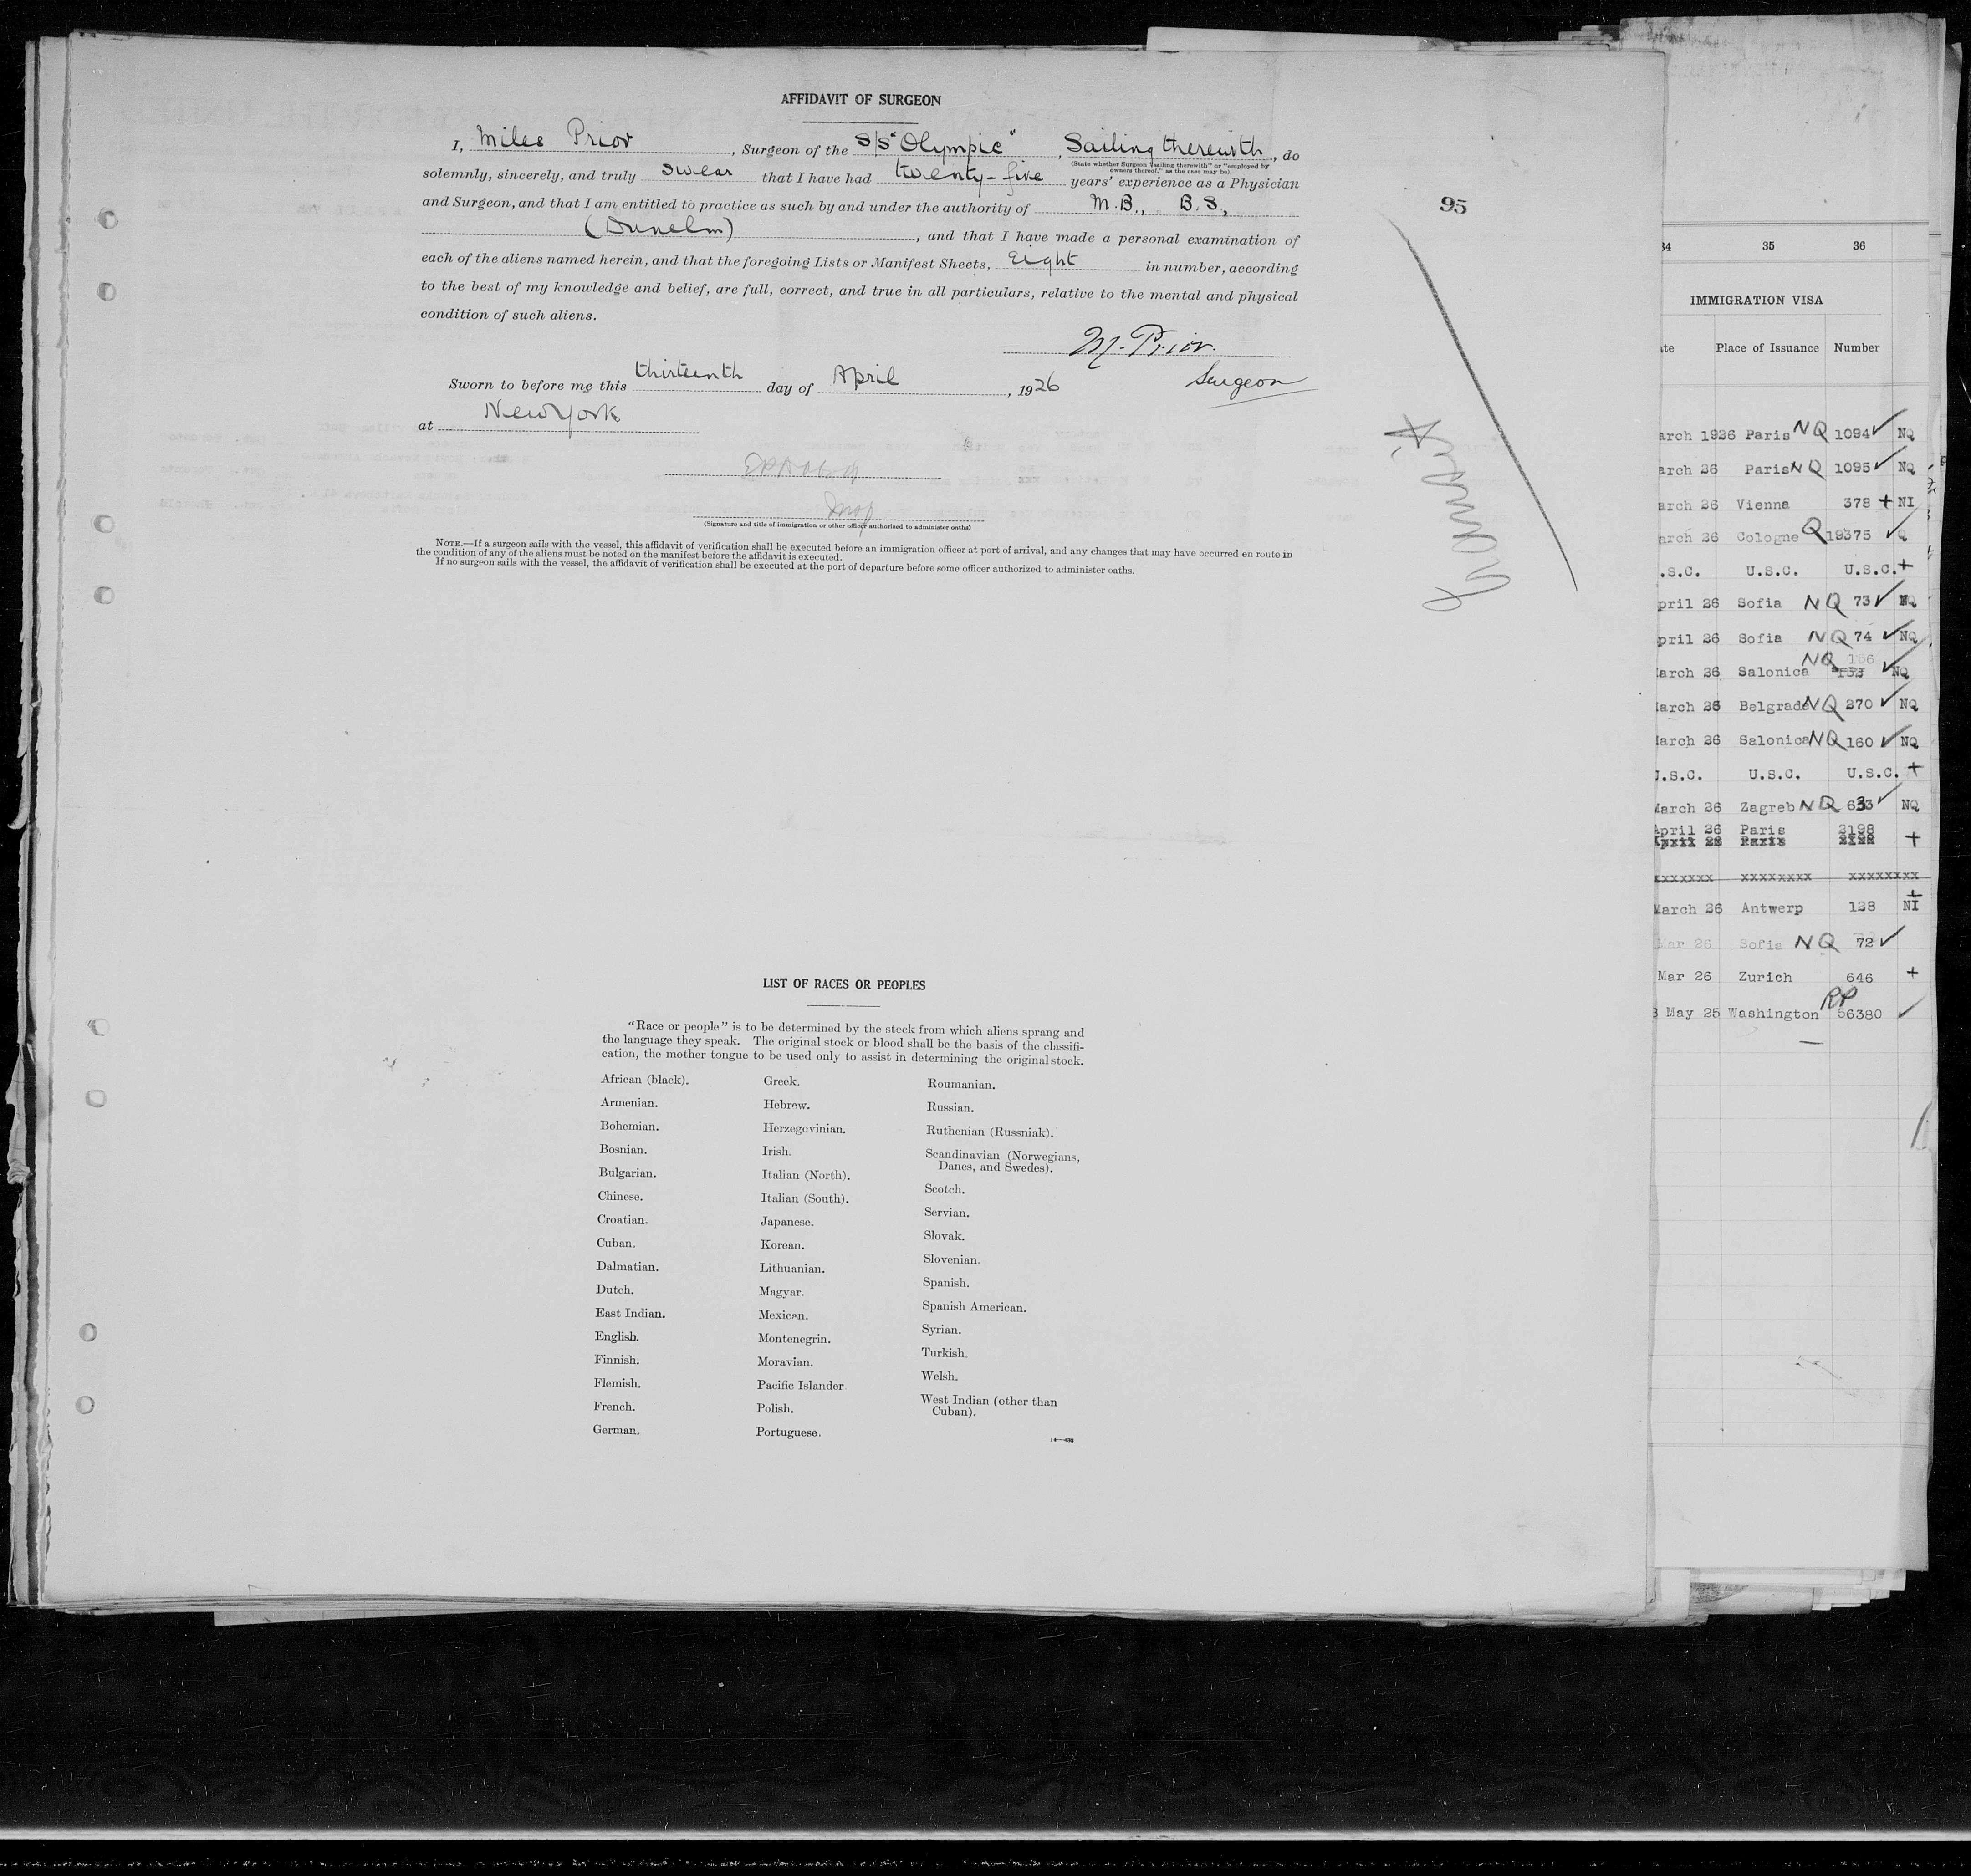 AFFIDAVIT OF SURGEON
I, Miles Prior, Surgeon of the S/S "Olympic", Sailing therewith, do
(State whether Surgeon "sailing therewith" or "employed by owners thereof," as the case may be)
solemnly, sincerely, and truly swear that I have had twenty-five years' experience as a Physician
and Surgeon, and that I am entitled to practice as such by and under the authority of M.B., B.S.,
(Dunelm), and that I have made a personal examination of
each of the aliens named herein, and that the foregoing Lists or Manifest Sheets, Eight in number, according
to the best of my knowledge and belief, are full, correct, and true in all particulars, relative to the mental and physical
condition of such aliens.
M. Prior.
Surgeon
Sworn to before me this thirteenth day of April, 1926
at New York
(Signature and title of immigration or other officer authorized to administer oaths)
NOTE.—If a surgeon sails with the vessel, this affidavit of verification shall be executed before an immigration officer at port of arrival, and any changes that may have occurred en route in
the condition of any of the aliens must be noted on the manifest before the affidavit is executed.
If no surgeon sails with the vessel, the affidavit of verification shall be executed at the port of departure before some officer authorized to administer oaths.
95
LIST OF RACES OR PEOPLES
"Race or people" is to be determined by the stock from which aliens sprang and
the language they speak. The original stock or blood shall be the basis of the classifi-
cation, the mother tongue to be used only to assist in determining the original stock.
African (black).
Armenian.
Bohemian.
Bosnian.
Bulgarian.
Chinese.
Croatian.
Cuban.
Dalmatian.
Dutch.
East Indian.
English.
Finnish.
Flemish.
French.
German.
Greek.
Hebrew.
Herzegovinian.
Irish.
Italian (North).
Italian (South).
Japanese.
Korean.
Lithuanian.
Magyar.
Mexican.
Montenegrin.
Moravian.
Pacific Islander
Polish.
Portuguese.
Roumanian.
Russian.
Ruthenian (Russniak).
Scandinavian (Norwegians,
Danes, and Swedes).
Scotch.
Servian.
Slovak.
Slovenian.
Spanish.
Spanish American.
Syrian.
Turkish.
Welsh.
West Indian (other than
Cuban).
34 35 36
IMMIGRATION VISA
Place of Issuance Number
arch 1926 Paris NQ 1094 NQ
arch 26 Paris NQ 1095 NQ
arch 26 Vienna 378 + NI
arch 26 Cologne Q 19375 Q
.S.C. U.S.C. U.S.C. +
pril 26 Sofia NQ 73 NQ
pril 26 Sofia NQ 74 NQ
arch 26 Salonica NQ 156 NQ
arch 26 Belgrade NQ 270 NQ
arch 26 Salonica NQ 160 NQ
U.S.C. U.S.C. U.S.C. +
March 26 Zagreb NQ 633 NQ
April 26 Paris 2198 +
xxxxxxx xxxxxxxx xxxxxxxx
March 26 Antwerp 128 + NI
Mar 26 Sofia NQ 72
Mar 26 Zurich 646 +
8 May 25 Washington RP 56380